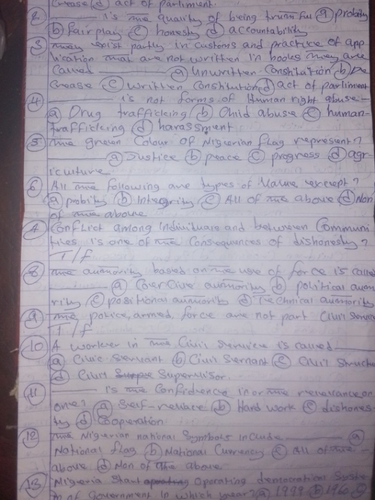 Crease (d) act of parliment
2 ______ is the quality of being truseful (a) probity
(b) fair play (c) honesty (d) accountability
3 They exist partly in Customs and practice of app
lication that are not written in books they are
Called ______ (a) Unwritten Constitution (b) De
Crease (c) Written Constitution (d) act of parliment
4 ______ is not forms of Human right abuse-
(a) Drug trafficking (b) Child abuse (c) human-
traffickering (d) harassment
5 The green Colour of Nigerian flag represent?
(a) Justice (b) peace (c) progress (d) agr-
iculture
6 All the following are types of Value except?
(a) probity (b) Integrity (c) All of the above (d) Non
of the above
7 Conflict among individuals and between Communi
ties is one of the Consequences of dishonesty?
T/F
8 The authority based on the use of force is called
______ (a) Coercive authority (b) political autho
rity (c) positional authority (d) Technical authority
9 The police, armed force are not part Civil Service
T/F
10 A worker in the Civil Service is called ______
(a) Civic Servant (b) Civil Servant (c) Civil Structure
(d) Civil Supervisor
11 ______ is the Confidence in or the reliance on
one? (a) Self-reliace (b) Hard work (c) dishones
ty (d) Coperation
12 The Nigerian national Symbols include ______ (a)
National flag (b) National Currency (c) All of the
above (d) Non of the above
13 Nigeria Start Operating democratic Syste
m of Government in which year? (a) 1999 (b) 196